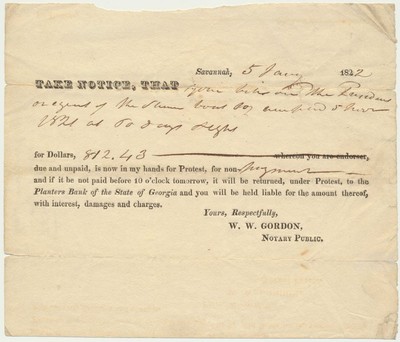 Savannah, 5 Jany 1822
TAKE NOTICE, THAT your bill on the President
or agent of the Steam boat Co
1821 at 60 days sight
for Dollars, 812.43 whereon you are endorser,
due and unpaid, is now in my hands for Protest, for non-payment
and if it be not paid before 10 o'clock tomorrow, it will be returned, under Protest, to the
Planters Bank of the State of Georgia and you will be held liable for the amount thereof,
with interest, damages and charges.
Yours, Respectfully,
W. W. GORDON,
NOTARY PUBLIC.